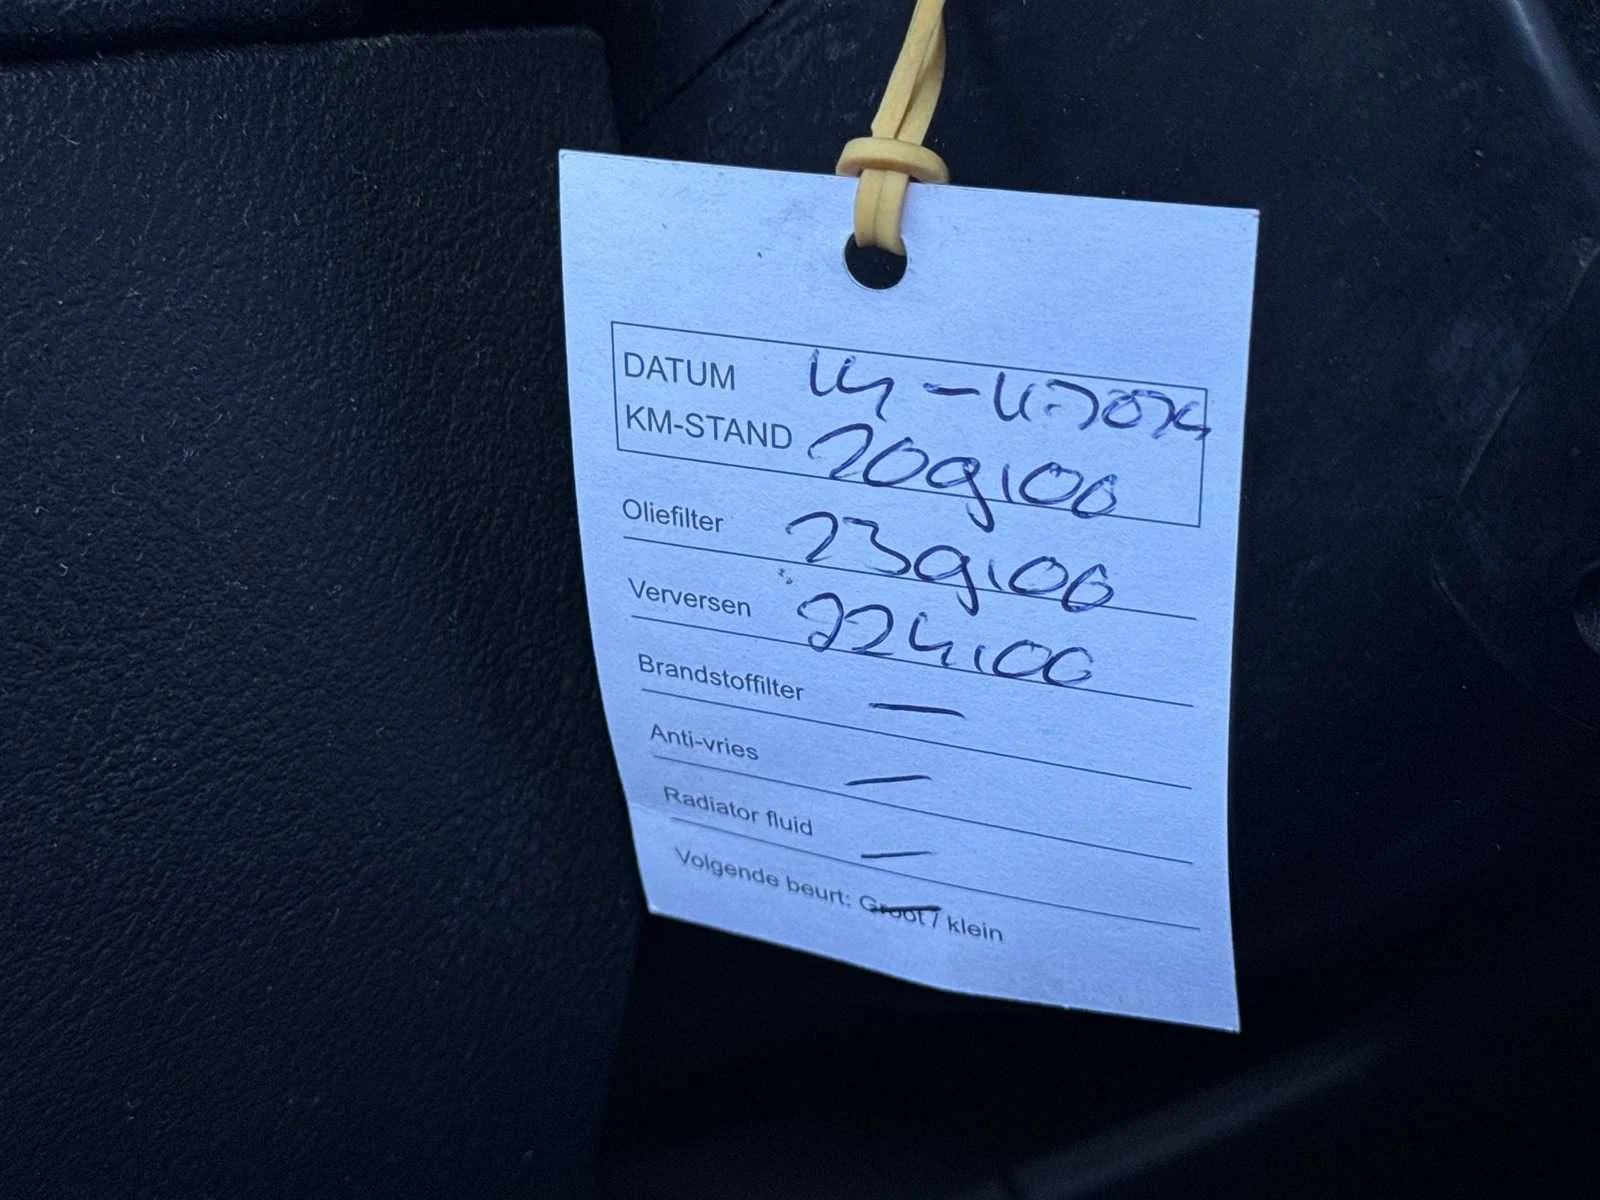 DATUM
KM-STAND 209100
Oliefilter 239100
Verversen 224100
Brandstoffilter —
Anti-vries —
Radiator fluid —
Volgende beurt: Groot / klein